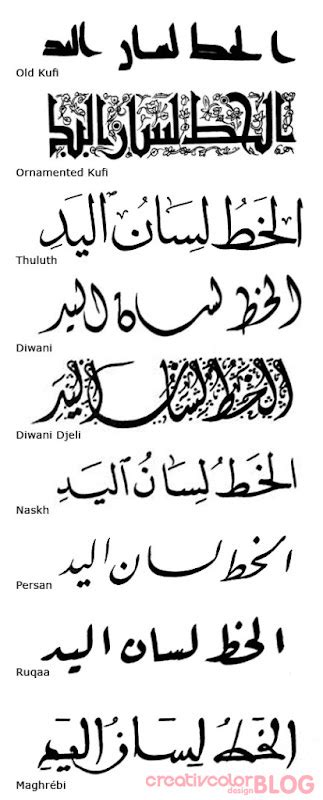 الخط لسان اليد
Old Kufi
الخط لسان اليد
Ornamented Kufi
الخَطُّ لِسَانُ اليَدِ
Thuluth
الخط لسان اليد
Diwani
الخط لسان اليد
Diwani Djeli
الخَطُّ لِسَانُ اليَدِ
Naskh
الخط لسان اليد
Persan
الخط لسان اليد
Ruqaa
الخط لسان اليد
Maghrébi
creativcolor design BLOG